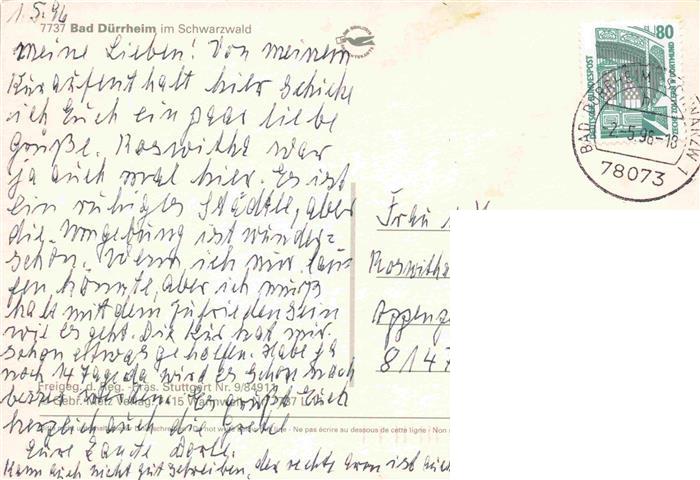 1.5.96
7737 Bad Dürrheim im Schwarzwald
meine Lieben! Von meinem
Kuraufenthalt hier schicke
ich Euch ein paar liebe
Grüße. Roswitha war
ja auch mal hier. Es ist
ein ruhiges Städtle, aber
die Umgebung ist wunder-
schön. Wenn ich nur lau-
fen könnte, aber ich muß
halt mit dem zufrieden sein
wie es geht. Die Kur hat mir
schon etwas geholfen. Habe ja
noch 14 Tage da wird es schon noch
besser werden. Es grüßt Euch
herzlich auch die Gretel
Eure Tante Dorle.
Kann auch nicht gut schreiben, der rechte Arm ist auch
Freigeg. d. Reg.-Präs. Stuttgart Nr. 9/84911
Ne pas écrire au dessous de cette ligne
80
DEUTSCHE BUNDESPOST
ZECHE ZOLLERN II DORTMUND
BAD DÜRRHEIM
-2.-5.96-18
78073
Frau
Roswitha
Appenz
8147